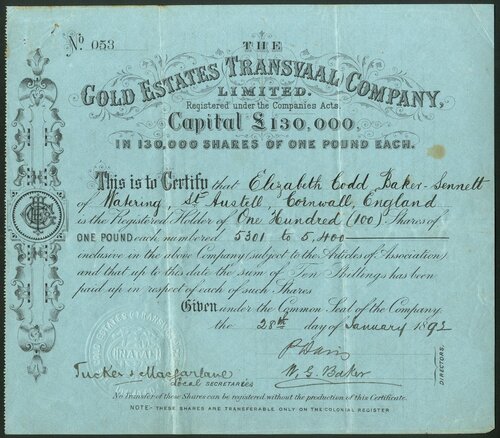 No 053
THE
GOLD ESTATES TRANSVAAL COMPANY,
LIMITED.
Registered under the Companies Acts.
Capital £130,000.
IN 130,000 SHARES OF ONE POUND EACH.
This is to Certify that Elizabeth Codd Baker-Sennett
of Watering, St Austell, Cornwall, England
is the Registered Holder of One Hundred (100) Shares of
ONE POUND each, numbered 5301 to 5,400
inclusive in the above Company (subject to the Articles of Association)
and that up to this date the sum of Ten Shillings has been
paid up in respect of each of such Shares
Given under the Common Seal of the Company
the 28th day of January 1892
W. G. Baker
DIRECTORS.
Tucker & Macfarlane
Local SECRETARIES
No Transfer of these Shares can be registered without the production of this Certificate.
NOTE:- THESE SHARES ARE TRANSFERABLE ONLY ON THE COLONIAL REGISTER